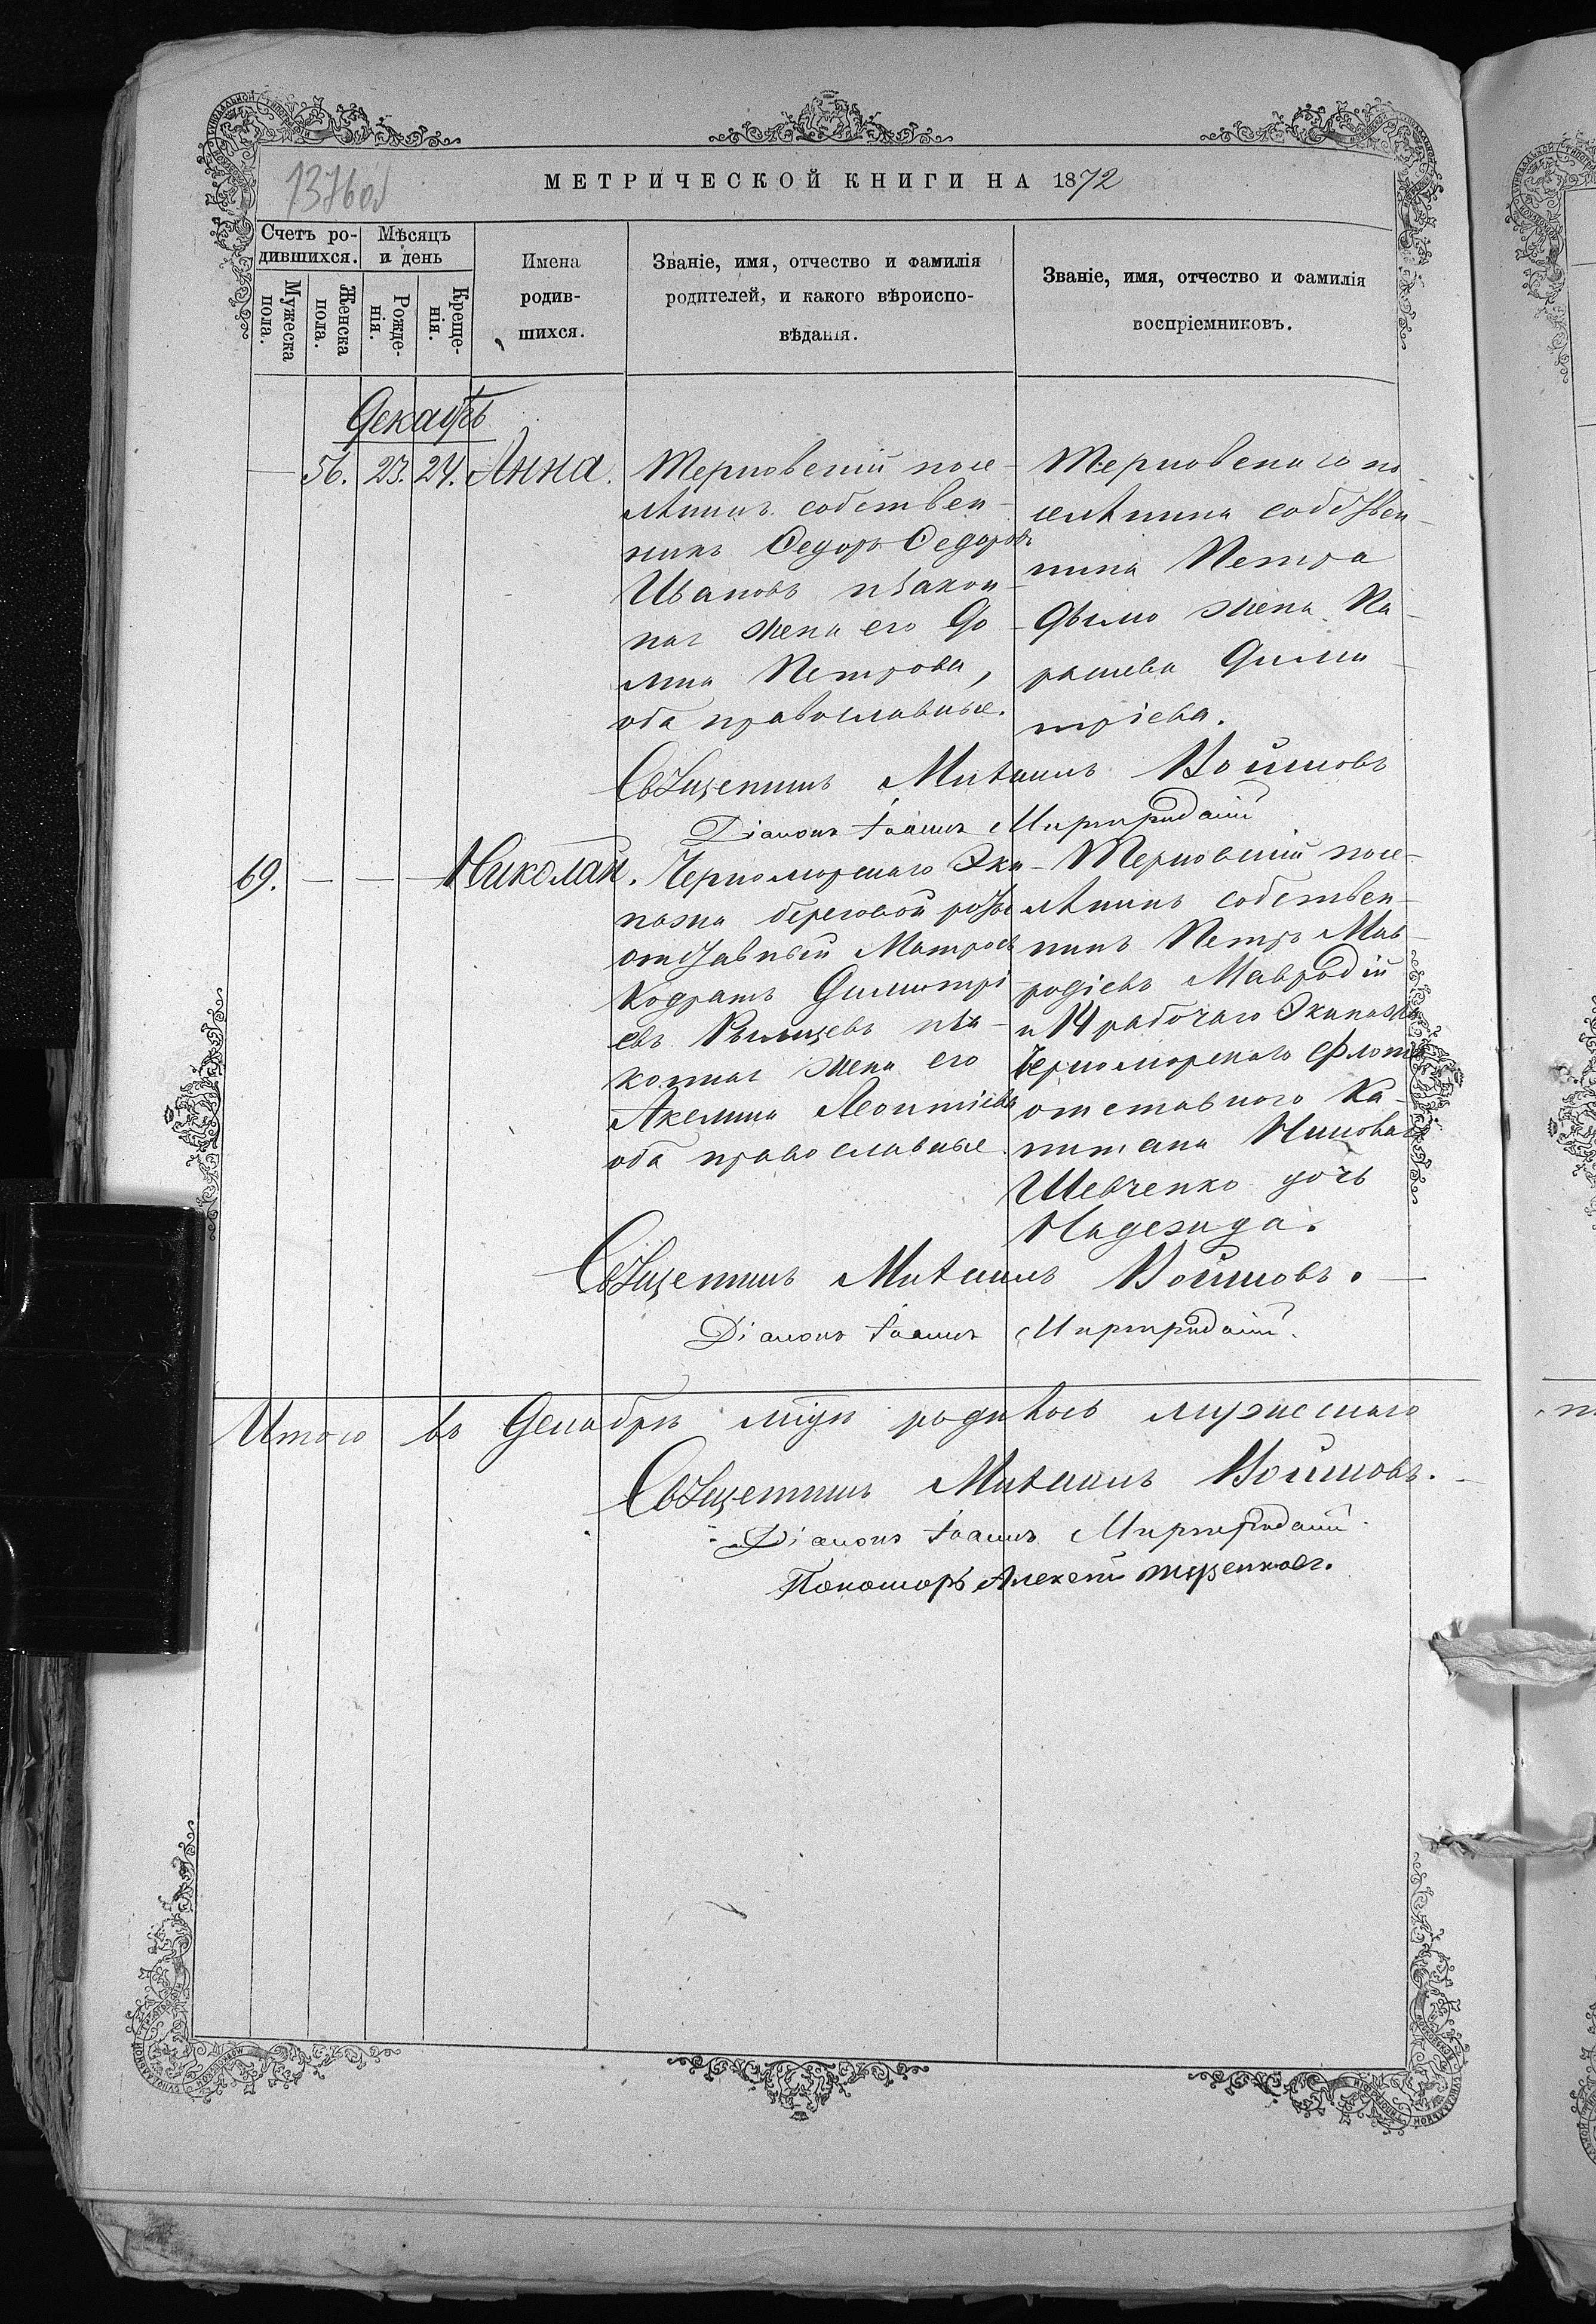 МЕТРИЧЕСКОЙ КНИГИ НА 1872
1376об
Счетъ ро-
дившихся.
Мѣсяцъ
и день
Мужеска
пола.
Женска
пола.
Рожде-
нія.
Креще-
нія.
Имена
родив-
шихся.
Званіе, имя, отчество и фамилія
родителей, и какого вѣроиспо-
вѣданія.
Званіе, имя, отчество и фамилія
воспріемниковъ.
Декабрь
56. 23. 24. Анна.
Терновскій посе-
лянинъ собствен-
никъ Ѳедоръ Ѳедоровъ
Ивановъ и закон-
ная жена его До-
мна Петрова,
оба православные.
Терновскаго по
селянина собствен-
ника Петра
жена Па-
раскева Дими-
тріева.
Священникъ Михаилъ Войновъ
Діаконъ Іоаннъ
69. Николай.
Черноморскаго Эки-
пажа береговой роты
отставный Матросъ
Кодратъ Димитрі
евъ и за-
конная жена его
Акелина Леонтіева
оба православные.
Терновскій посе-
лянинъ собствен-
никъ Петръ Мав-
родіевъ Мавродій
и 14 рабочаго Экипажа
Черноморскаго Флота
отставного Ка-
питана
Шевченко дочь
Надежда.
Священникъ Михаилъ Войновъ.
Діаконъ Іоаннъ
Итого въ Декабрѣ родилось мужескаго
Священникъ Михаилъ Войновъ.
Діаконъ Іоаннъ
Пономарь Алексей